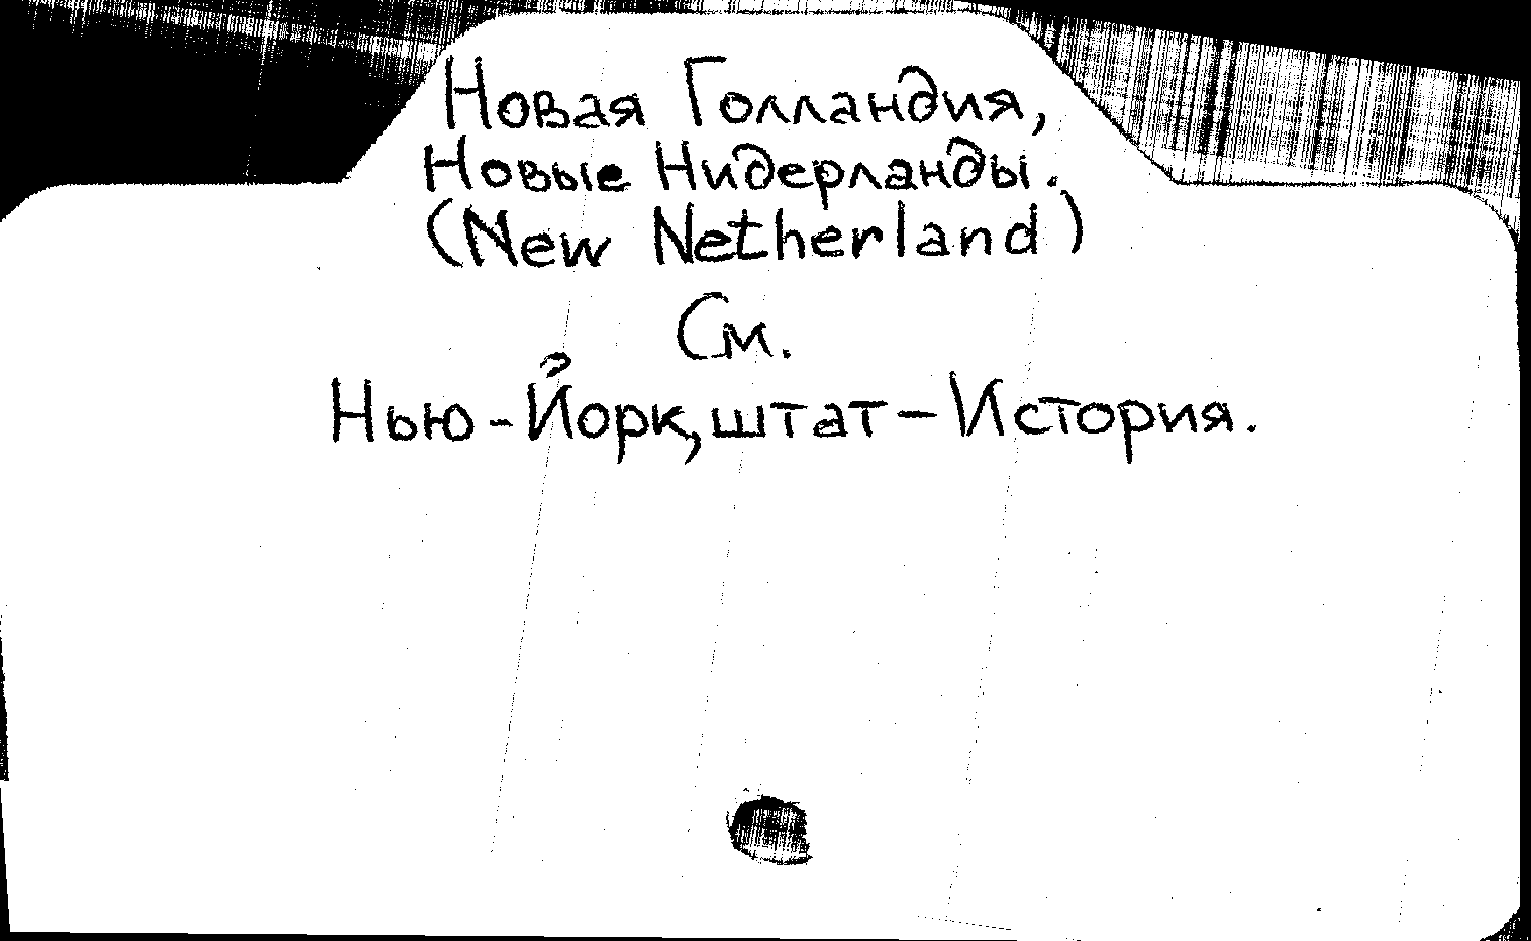 Новая Голландия,
Новые Нидерланды.
(New Netherland)
См.
Нью-Йорк, штат – История.